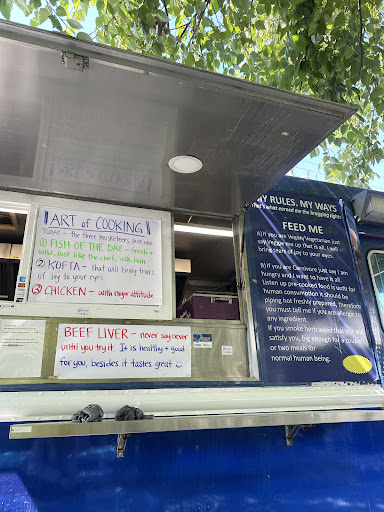 ART of COOKING
TODAY - the three musketeers, pick one
① FISH OF THE DAY -
wild, just like the chef, ask him
② KOFTA - that will bring tears
of joy to your eyes
③ CHICKEN - with attitude
BEEF LIVER - never say never
until you try it. It is healthy + good
for you, besides it tastes great
MY RULES. MY WAYS
that's what earned me the bragging rights
FEED ME
A) If you are Vegan/Vegetarian just
say Veggie me up that is all. I will
bring tears of joy to your eyes.
) If you are Carnivore just say I am
hungry and I want to have it all.
Listen up pre-cooked food is unfit for
human consumption it should be
piping hot freshly prepared. Therefore
you must tell me if you are allergic to
any ingredient.
If you smoke herb weed this will
satisfy you, big enough for a couple
or two meals for
normal human being.